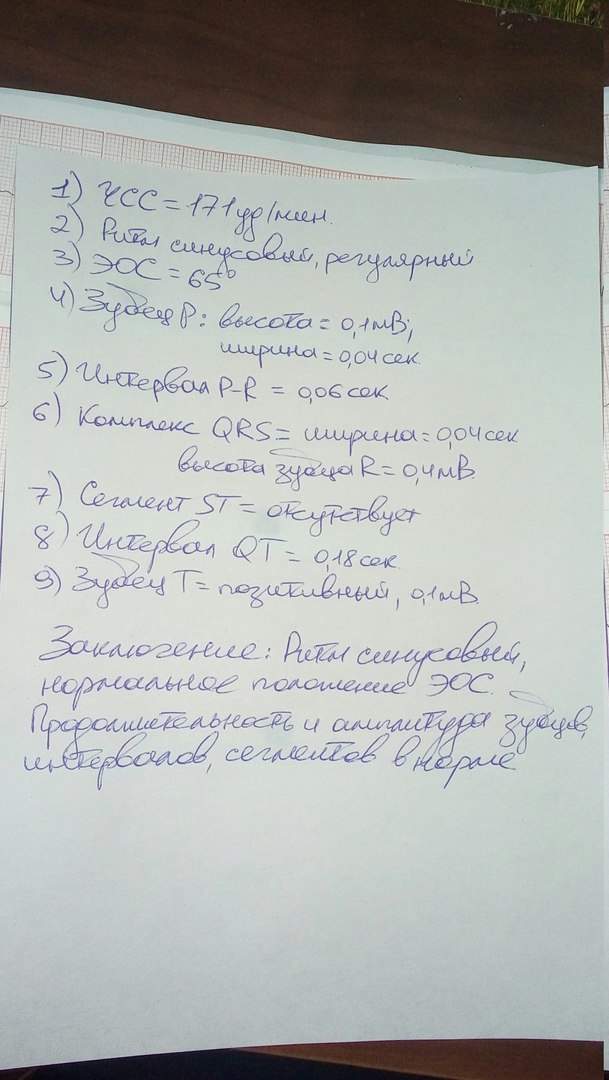 1) ЧСС = 171 уд/мин.
2) Ритм синусовый, регулярный
3) ЭОС = 65°
4) Зубец P: высота = 0,1 мВ;
ширина = 0,04 сек
5) Интервал P-R = 0,06 сек
6) Комплекс QRS = ширина = 0,04 сек
высота зубца R = 0,4 мВ
7) Сегмент ST = отсутствует
8) Интервал QT = 0,18 сек
9) Зубец T = позитивный, 0,1 мВ
Заключение: Ритм синусовый,
нормальное положение ЭОС.
Продолжительность и амплитуда зубцов,
интервалов, сегментов в норме